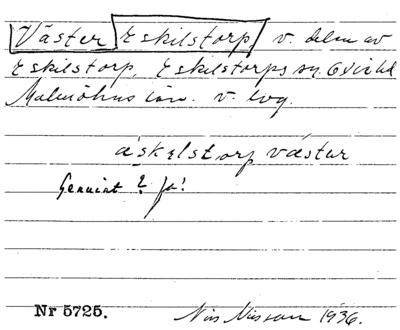 Väster Eskilstorp, v. delen av
Eskilstorp, Eskilstorps sn. Oxie hd
Malmöhus län. v. log.
áskelstorp västur
Genuint? Ja!
Nr 5725.
Nils Nilsson 1936.